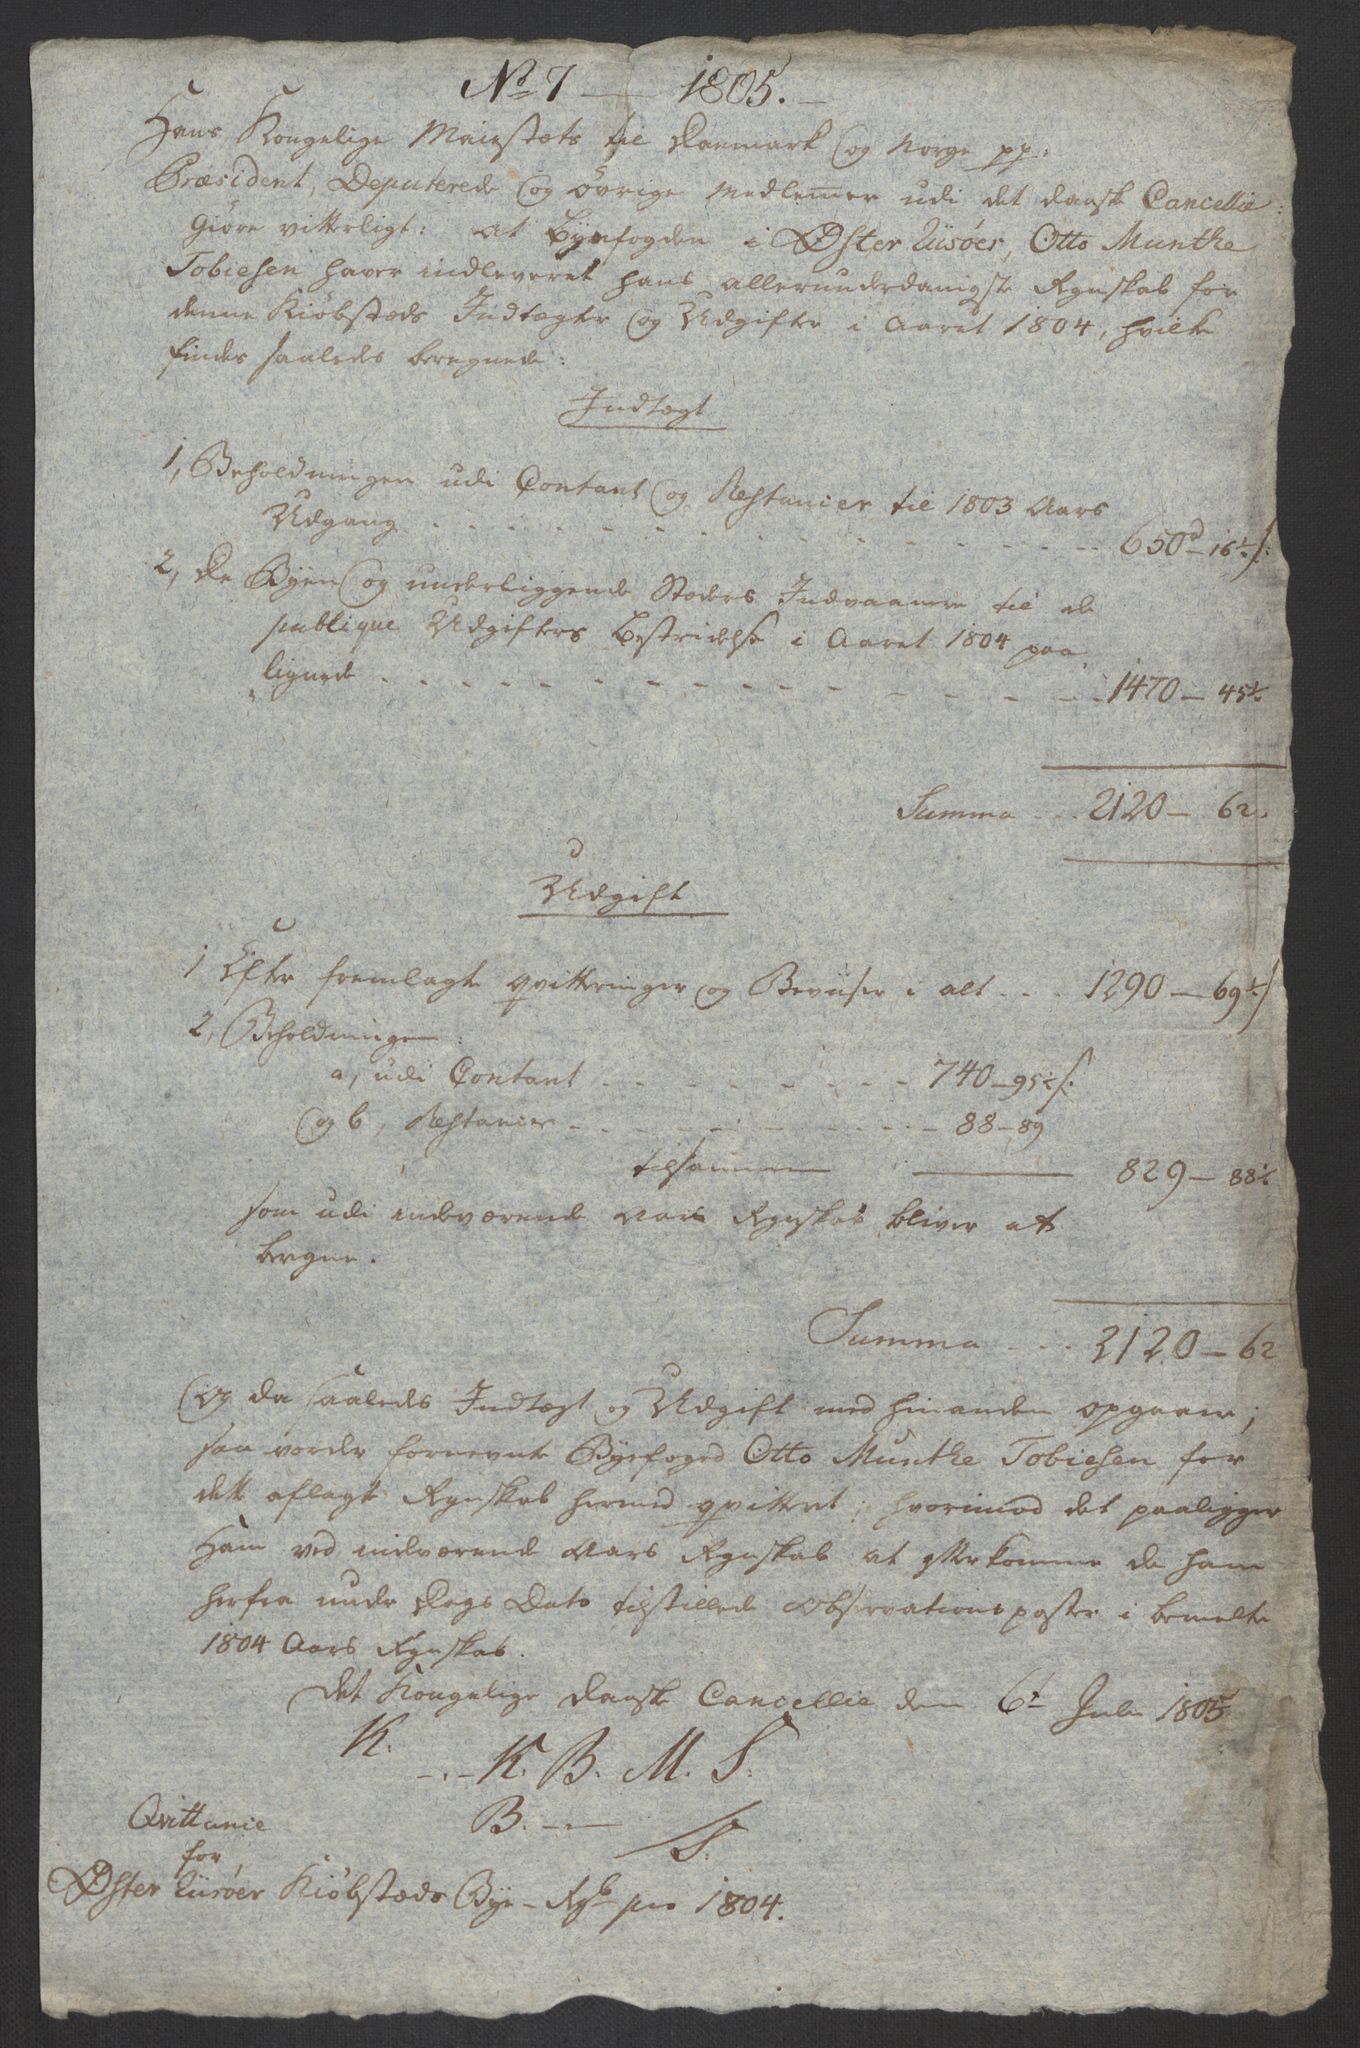 No 7 — 1805. —
Hans Kongelige Maiestæts til Danmark og Norge pp:
Præsident, Deputerede og øvrige Medlemer udi det danske Cancellie
Giøre vitterligt: at Byefogden i Øster Riisøer, Otto Munthe
Tobiesen haver indleveret hans allerunderdanigste Regnskab for
denne Kiøbstæds Indtægter og Udgifter i Aaret 1804, hvilke
findes saaledes beregnede:
Indtægt
1, Beholdningen udi Contant og Restancier til 1803 Aars
Udgang - - - 650 rd - 16½ s:
2, De Byen og underliggende Stæders Indvaanere til de
publique Udgifters Bestridelse i Aaret 1804 paa
lignede - - - 1470 - 45½
Summa - - - 2120 - 62.
Udgift
1 Efter fremlagte qvitteringer og Beviiser i alt - - - 1290 - 69½ s
2, Beholdningen:
a, udi Contant - - - 740 - 95½ s:
og b, Restancier - - - 88 - 89
tilsammen — 829 - 88½
som udi indeværende Aars Regnskab bliver at
beregne.
Summa - - - 2120 - 62
Og da saaledes Indtægt og Udgift med hinanden opgaaer;
saa vorder fornevnte Byefoged Otto Munthe Tobiesen for
dette aflagte Regnskab hermed qvitteret; hvorimod det paaligger
Ham ved indeværende Aars Regnskab at efterkomme de ham
herfra under Dags Dato tilstillede Observationsposter i bemelte
1804 Aars Regnskab.
Det Kongelige Danske Cancellie den 6t Julii 1805
K. -.- K. B. M. S.
B. -.- S.
Qvittanie
for
Øster Riisøer Kiøbstæds Bye-Rgb pro 1804.